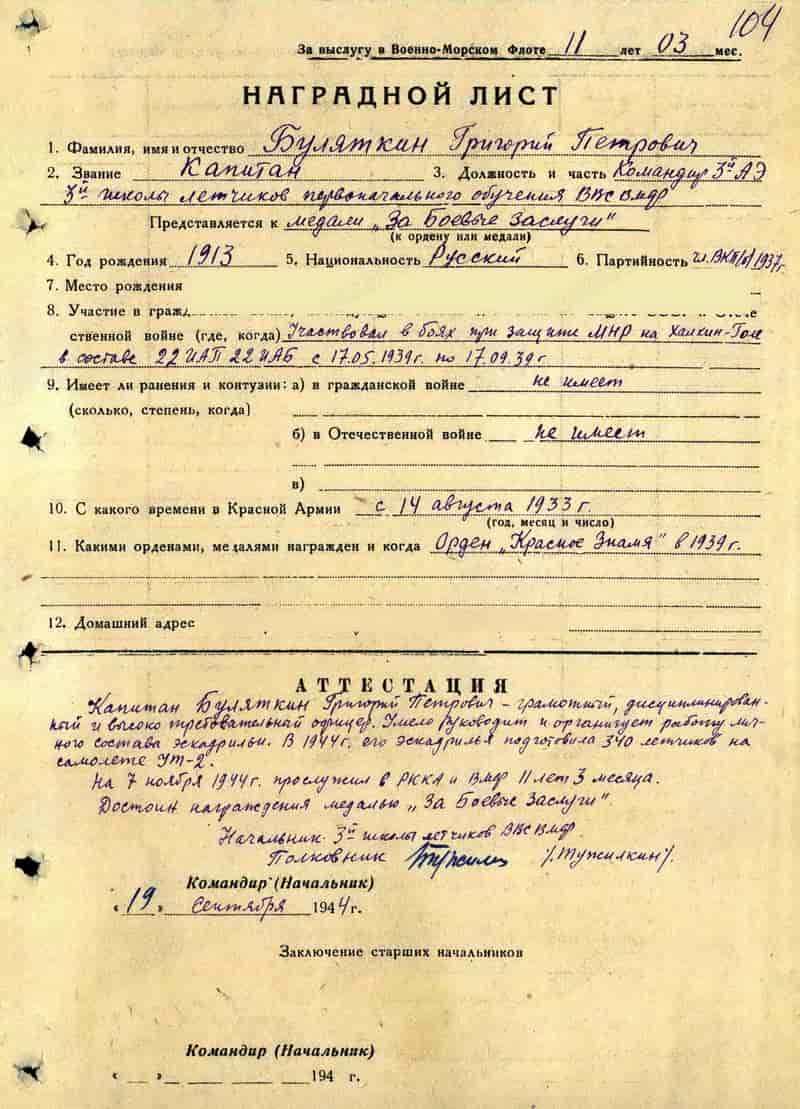 104
За выслугу в Военно-Морском Флоте 11 лет 03 мес.
НАГРАДНОЙ ЛИСТ
1. Фамилия, имя и отчество Буляткин Григорий Петрович
2. Звание Капитан 3. Должность и часть Командир 3й АЭ
3й школы летчиков первоначального обучения ВВС ВМФ
Представляется к медали „За Боевые Заслуги"
(к ордену или медали)
4. Год рождения 1913 5. Национальность Русский 6. Партийность чл. ВКП/б/ 1937г.
7. Место рождения
8. Участие в гражд
ственной войне (где, когда) Участвовал в боях при защите МНР на Халкин-Голе
в составе 22 ИАП 22 ИАБ с 17.05.1939г. по 17.09.39г.
9. Имеет ли ранения и контузии: а) в гражданской войне не имеет
(сколько, степень, когда)
б) в Отечественной войне не имеет
в)
10. С какого времени в Красной Армии с 14 августа 1933 г.
(год, месяц и число)
11. Какими орденами, медалями награжден и когда Орден „Красное Знамя" в 1939 г.
12. Домашний адрес
АТТЕСТАЦИЯ
Капитан Буляткин Григорий Петрович – грамотный, дисциплинирован-
ный и высоко требовательный офицер. Умело руководит и организует работу лич-
ного состава эскадрильи. В 1944г. его эскадрилья подготовила 340 летчиков на
самолете УТ-2.
На 7 ноября 1944г. прослужил в РККА и ВМФ 11 лет 3 месяца.
Достоин награждения медалью „За Боевые Заслуги".
Начальник 3й школы летчиков ВВС ВМФ
Полковник /Тужилкин/.
Командир (Начальник)
« 19 » Сентября 1944г.
Заключение старших начальников
Командир (Начальник)
« » 194 г.